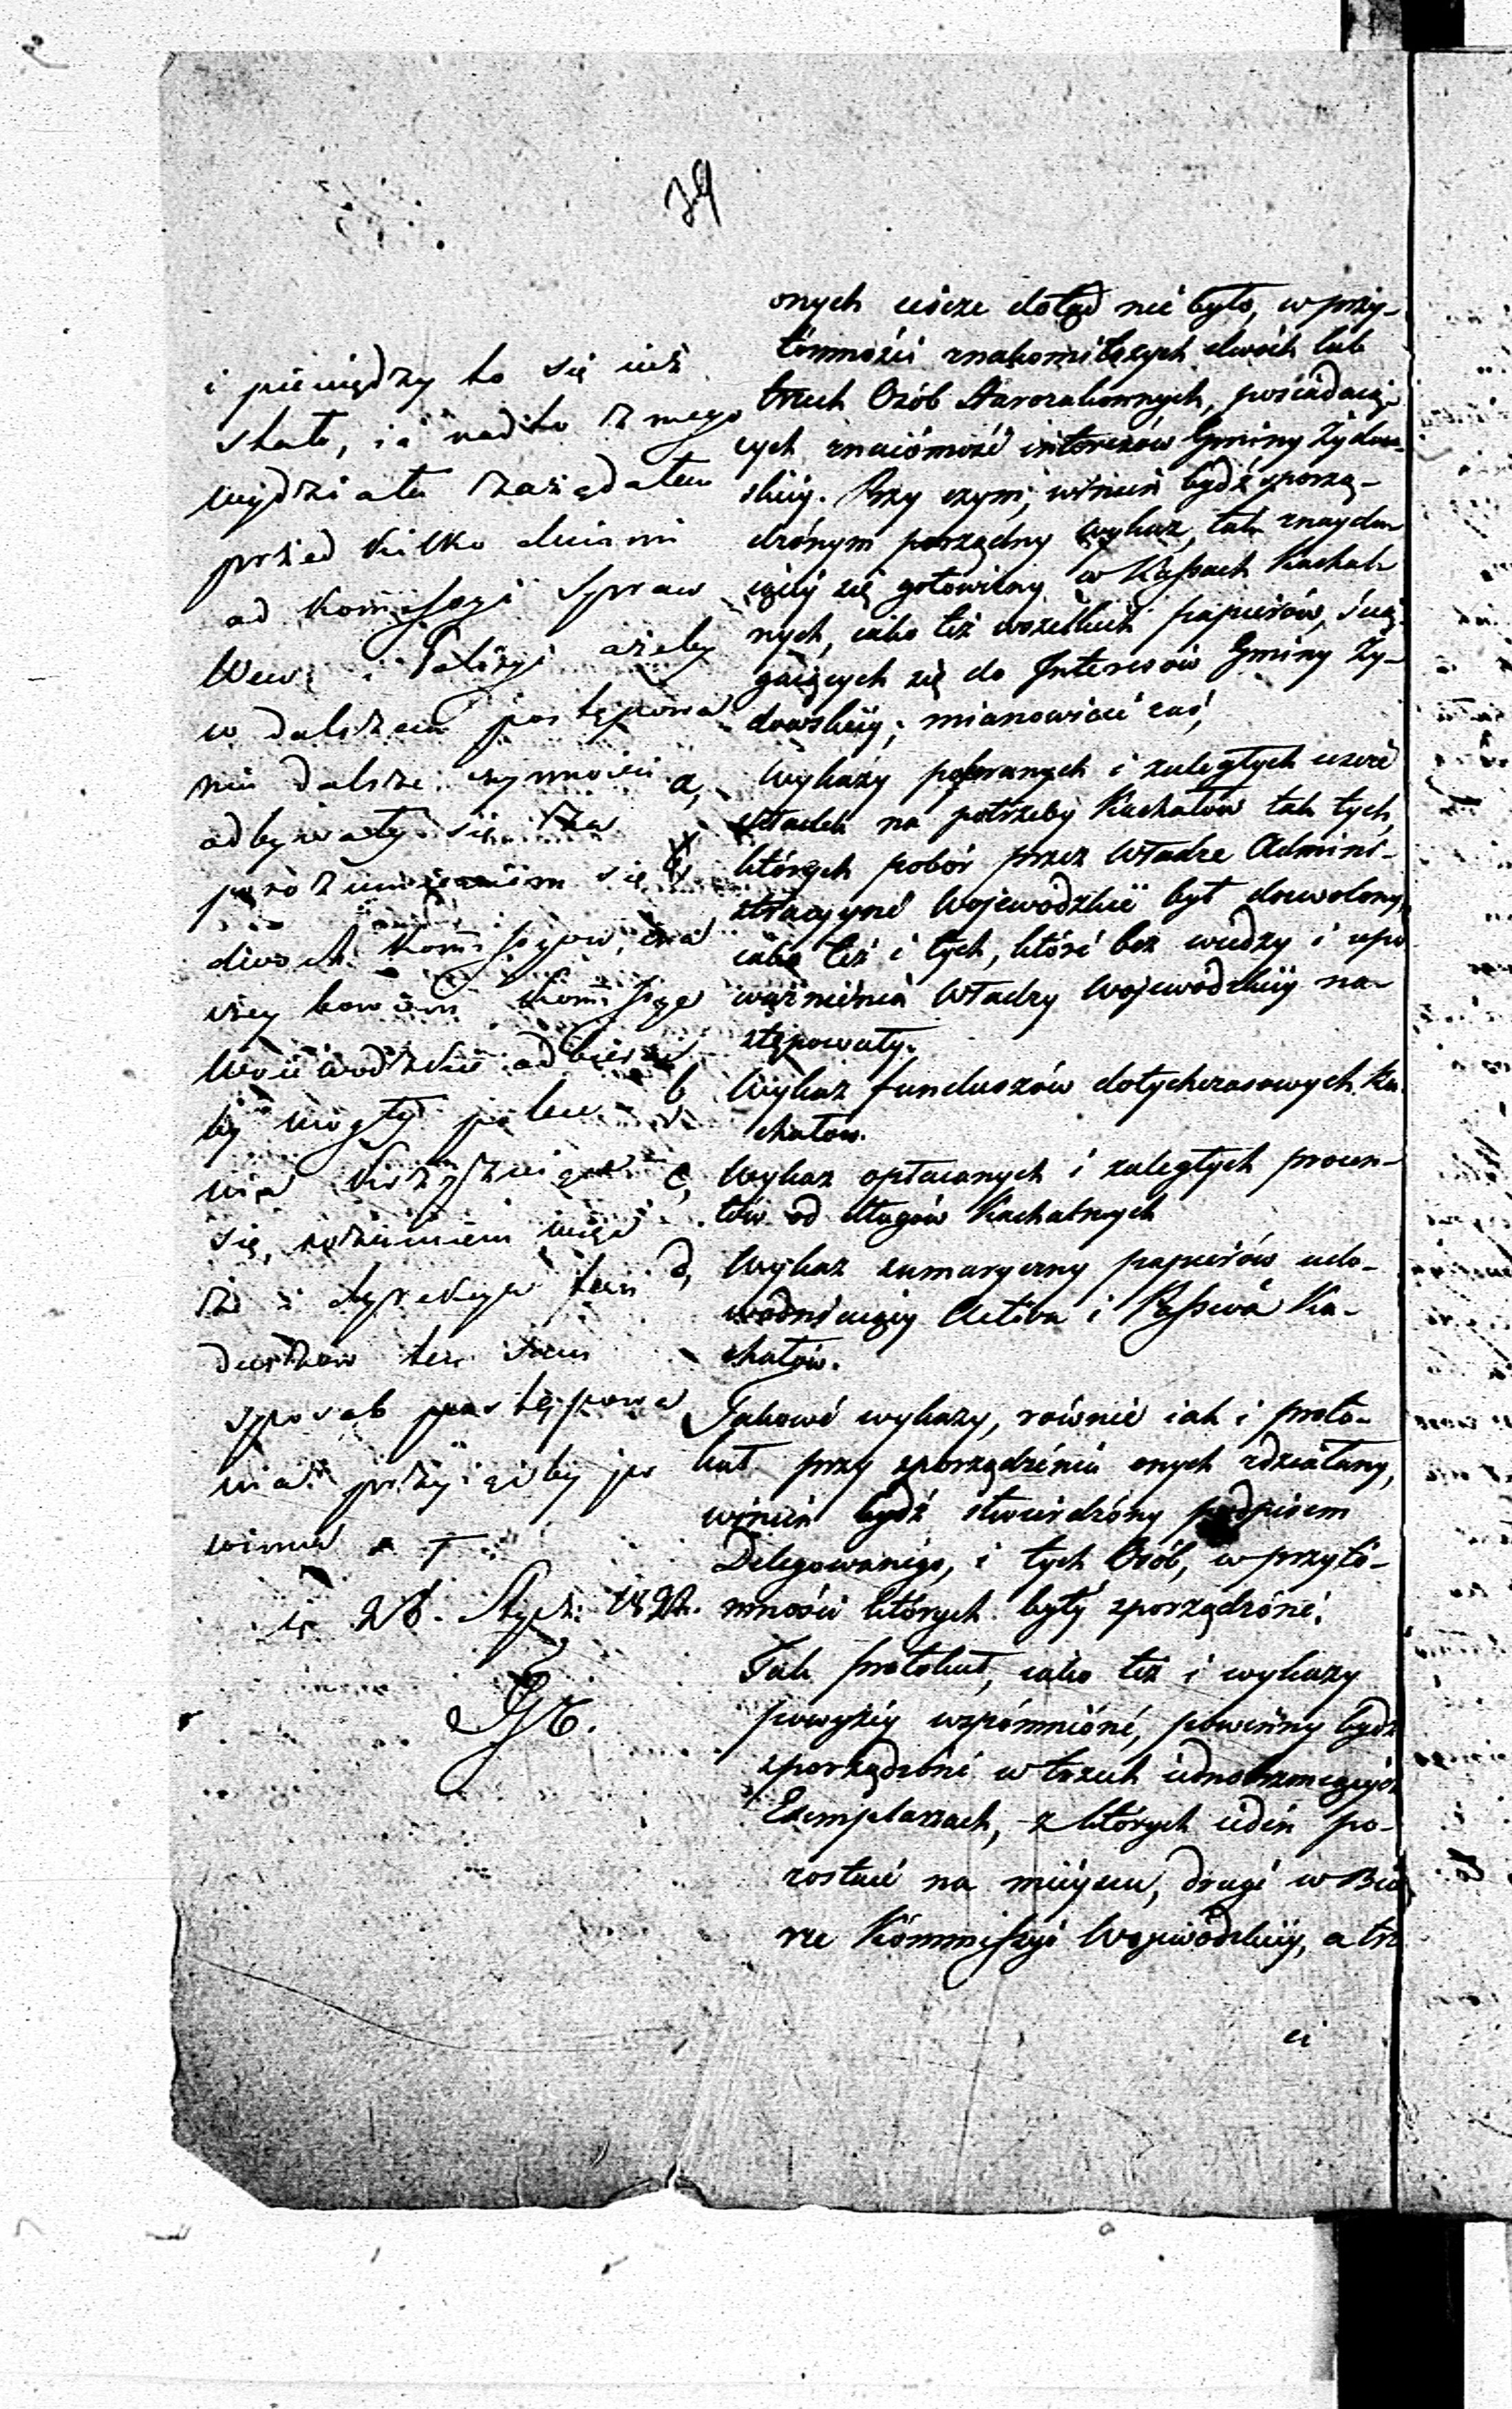 34
i pieniędzy to się iuż
stało, iż nadto z mego
wydziału zażądałem
przed kilko dniami
od Kommissyi Spraw
Wew: i Policyi ażeby
w dalszem postępowa
niu dalsze czynności
odbywały się za
porozumieniem się
dwóch Kommissyow,
bowiem Kommissye
Woiewodzkie odbierać
by mogły polece
nia krzyżuiące
się, rozumiem więc
że i dyrekcya fun
duszow ten sam
sposob postępowa
nia przyiąćby po
winna
d. 28. Stycz: 1822.
onych iescze dotąd nie było, w przy-
tomności znakomitszych dwóch lub
trzech Osób Starozakonnych, posiadaią-
cych znaiomość interesów Gminy Żydow-
skiey. Przy czym, winien bydź sporzą-
dzonym porządny wykaz, tak znaydu-
iącey się gotowizny w Kassach Kachal-
nych, iako też wszelkich papierów, ścią-
gaiących się do Interesów Gminy Ży-
dowskiey; mianowicie zaś,
a, Wykazy pobranych i zaległych iescze
składek na potrzeby Kachałów tak tych,
których pobór przez Władze Admini-
stracyyne Wojewodzkie był dozwolony,
iako też i tych, które bez wiedzy i upo
ważnienia Władzy Wojewodzkiey na-
stępowały.
b Wykaz funduszów dotychczasowych Ka-
chałow.
c, Wykaz opłacanych i zaległych procen-
tów od długów Kachalnych
d, Wykaz sumaryczny papierów udo-
wodniaiący Activa i Passiva Ka-
chałów.
Takowe wykazy, równie iak i proto-
kuł przy sporządzeniu onych zdziałany,
winien bydź stwierdzony podpisem
Delegowanego, i tych Osób, w przyto-
mności których były sporządzone.
Tak protokuł, iako też i wykazy
powyżey wspomnione, powinny bydź
sporządzone w trzech iednobrzmiących
Exemplarzach, z których ieden po-
zostaie na mieyscu, drugi w Bió
rze Kommissyi Wojewodzkiey, a trz
ci